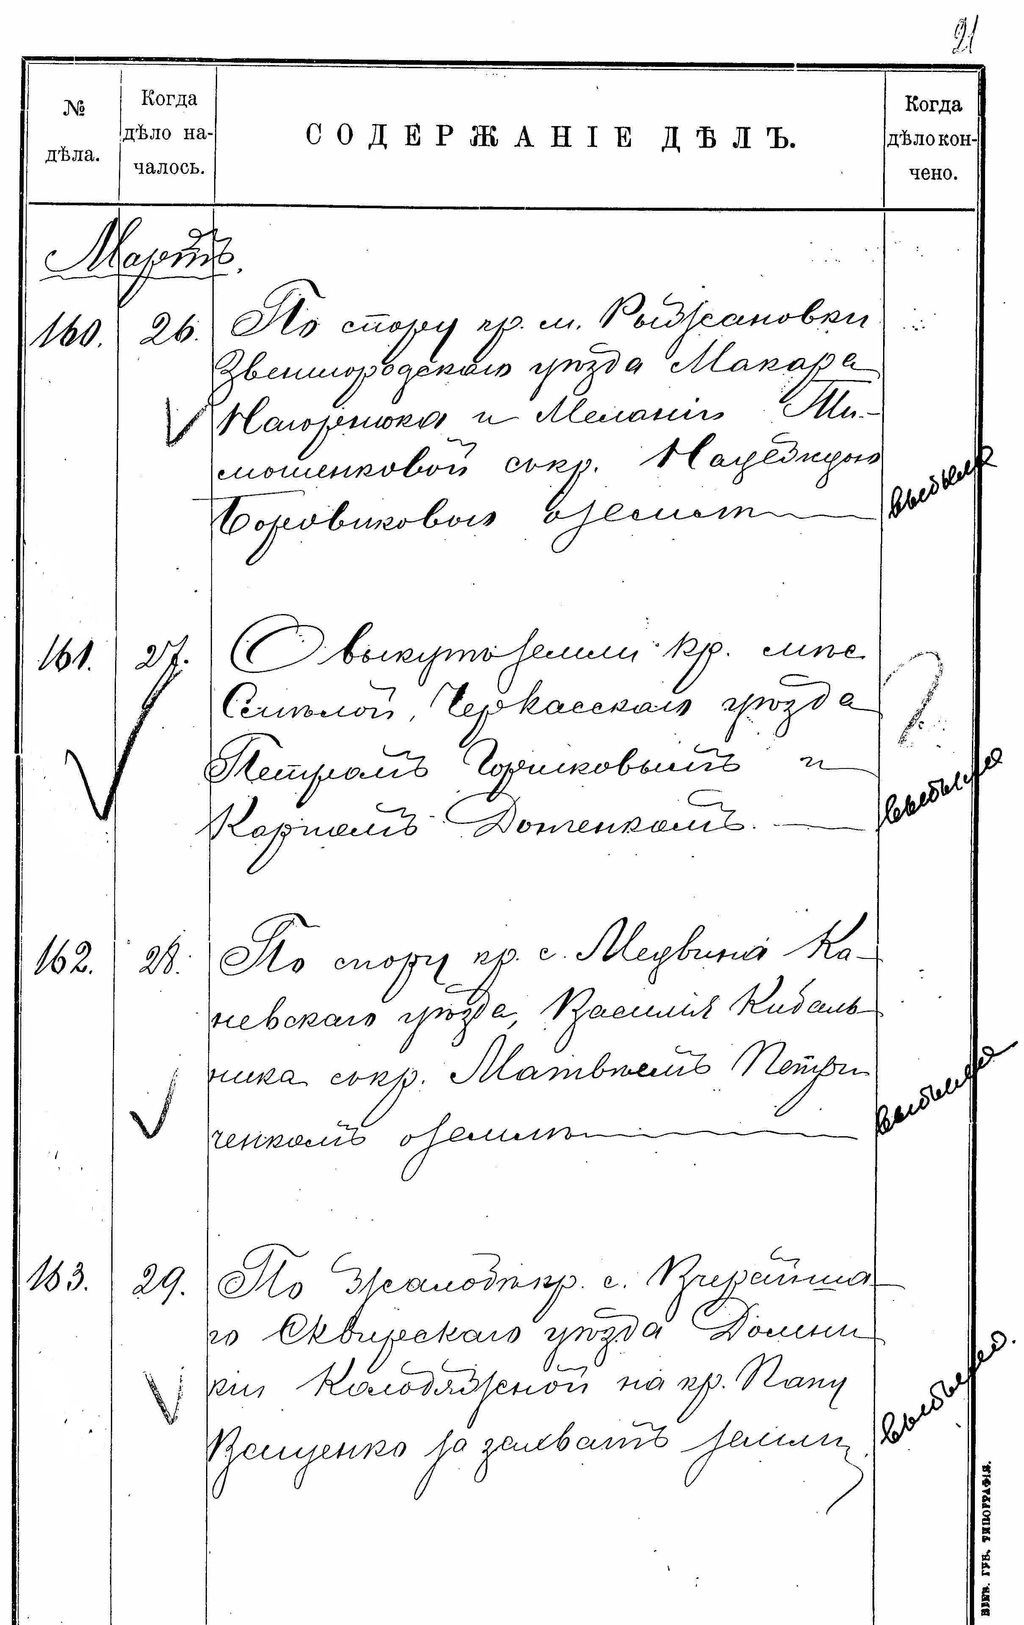 21
№
дѣла.
Когда
дѣло на-
чалось.
СОДЕРЖАНІЕ ДѢЛЪ.
Когда
дѣло кон-
чено.
Мартъ.
160. 26. По спору кр. м. Рыжановки
Звенигородскаго уѣзда Макара
Нагорнюка и Меланіи Ти-
мошенковой съ кр. Надеждою
Боровиковою о земли
выбыло
161. 27. О выкупѣ земли кр. мѣс
Смѣлой, Черкасскаго уѣзда
Петромъ Горшковымъ и
Карпомъ Доценкомъ.
выбыло
162. 28. По спору кр. с. Медвина Ка-
невскаго уѣзда, Василія Кибаль
ника съ кр. Матвѣемъ Петри
ченкомъ о земли
выбыло
163. 29. По жалобѣ кр. с. Вчерайша
го Сквирскаго уѣзда Домни
кіи Колодяжной на кр.
Ващенко за захватъ земли
выбыло.
КІЕВ. ГУБ. ТИПОГРАФІЯ.